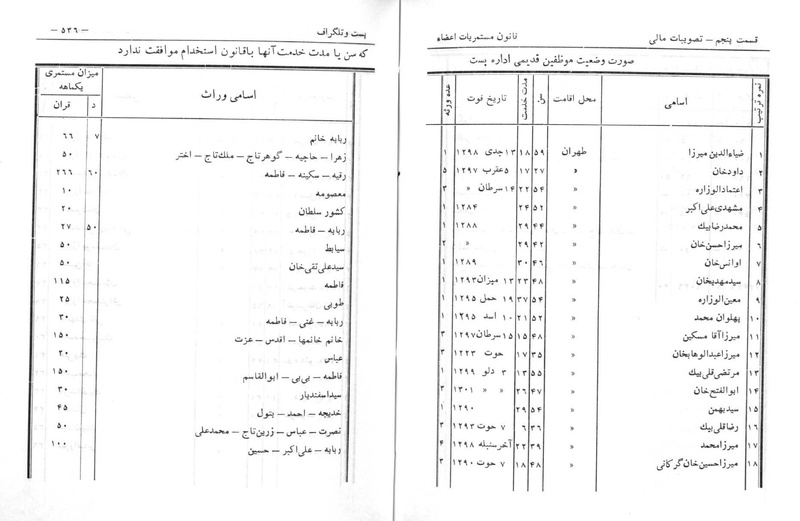 قسمت پنجم – تصویبات مالی
قانون مستمریات اعضاء
صورت وضعیت موظفین قدیمی اداره پست
نمره ترتیب اسامی محل اقامت سن مدت خدمت تاریخ فوت عده ورثه
۱ ضیاءالدین میرزا طهران ۵۹ ۱۸ ۱۳ جدی ۱۲۹۸ ۱
۲ داودخان » ۲۷ ۱۷ ۵ عقرب ۱۲۹۷ ۵
۳ اعتمادالوزاره » ۵۴ ۲۲ ۱۴ سرطان » ۳
۴ مشهدی علی اکبر » ۵۲ ۲۴ ۱۲۸۴ ۱
۵ محمدرضا بیك » ۴۴ ۲۹ ۱۲۸۸ ۱
۶ میرزا حسن خان » ۴۲ ۲۹ » ۲
۷ اوانس خان » ۴۶ ۳۰ ۱۲۸۹ ۱
۸ سید مهدیخان » ۴۸ ۲۳ ۱۳ میزان ۱۲۹۳ ۱
۹ معین الوزاره » ۵۴ ۳۷ ۱۹ حمل ۱۲۹۵ ۱
۱۰ پهلوان محمد » ۵۲ ۲۱ ۱۰ اسد ۱۲۹۵ ۱
۱۱ میرزا آقا مسکین » ۴۸ ۱۵ ۱۵ سرطان ۱۲۹۷ ۳
۱۲ میرزا عبدالوهابخان » ۳۵ ۱۷ حوت ۱۲۲۳ ۳
۱۳ مرتضی قلی بیك » ۵۵ ۱۳ ۳ دلو ۱۲۹۹ ۱
۱۴ ابوالفتح خان » ۴۷ ۲۶ » » ۱۳۰۱ ۳
۱۵ سید بهمن » ۵۴ ۲۹ ۱۲۹۰ ۱
۱۶ رضا قلی بیك » ۳۶ ۶ ۷ حوت ۱۲۹۳ ۳
۱۷ میرزا محمد » ۳۹ ۲۲ آخر سنبله ۱۲۹۸ ۴
۱۸ میرزا حسین خان گرکانی » ۴۸ ۱۸ ۷ حوت ۱۲۹۰ ۳
پست و تلگراف
– ۵۳۶ –
که سن یا مدت خدمت آنها با قانون استخدام موافقت ندارد
اسامی وراث میزان مستمری یکماهه
د قران
ربابه خانم ۷ ۶۶
زهرا – حاجیه – گوهر تاج – ملك تاج – اختر ۵۰
رقیه – سکینه – فاطمه ۶۰ ۲۶۶
معصومه ۱۰
کشور سلطان ۲۰
ربابه – فاطمه ۵۰ ۲۷
سیابط ۵۰
سید علی تقی خان ۵۰
فاطمه ۱۱۵
طوبی ۲۵
ربابه – غنی – فاطمه ۳۰
خانم خانمها – اقدس – عزت ۱۵۰
عباس ۲۰
فاطمه – بی بی – ابوالقاسم ۱۵۰
سید اسفندیار ۳۰
خدیجه – احمد – بتول ۴۵
نصرت – عباس – زرین تاج – محمد علی ۵۰
ربابه – علی اکبر – حسین ۱۰۰